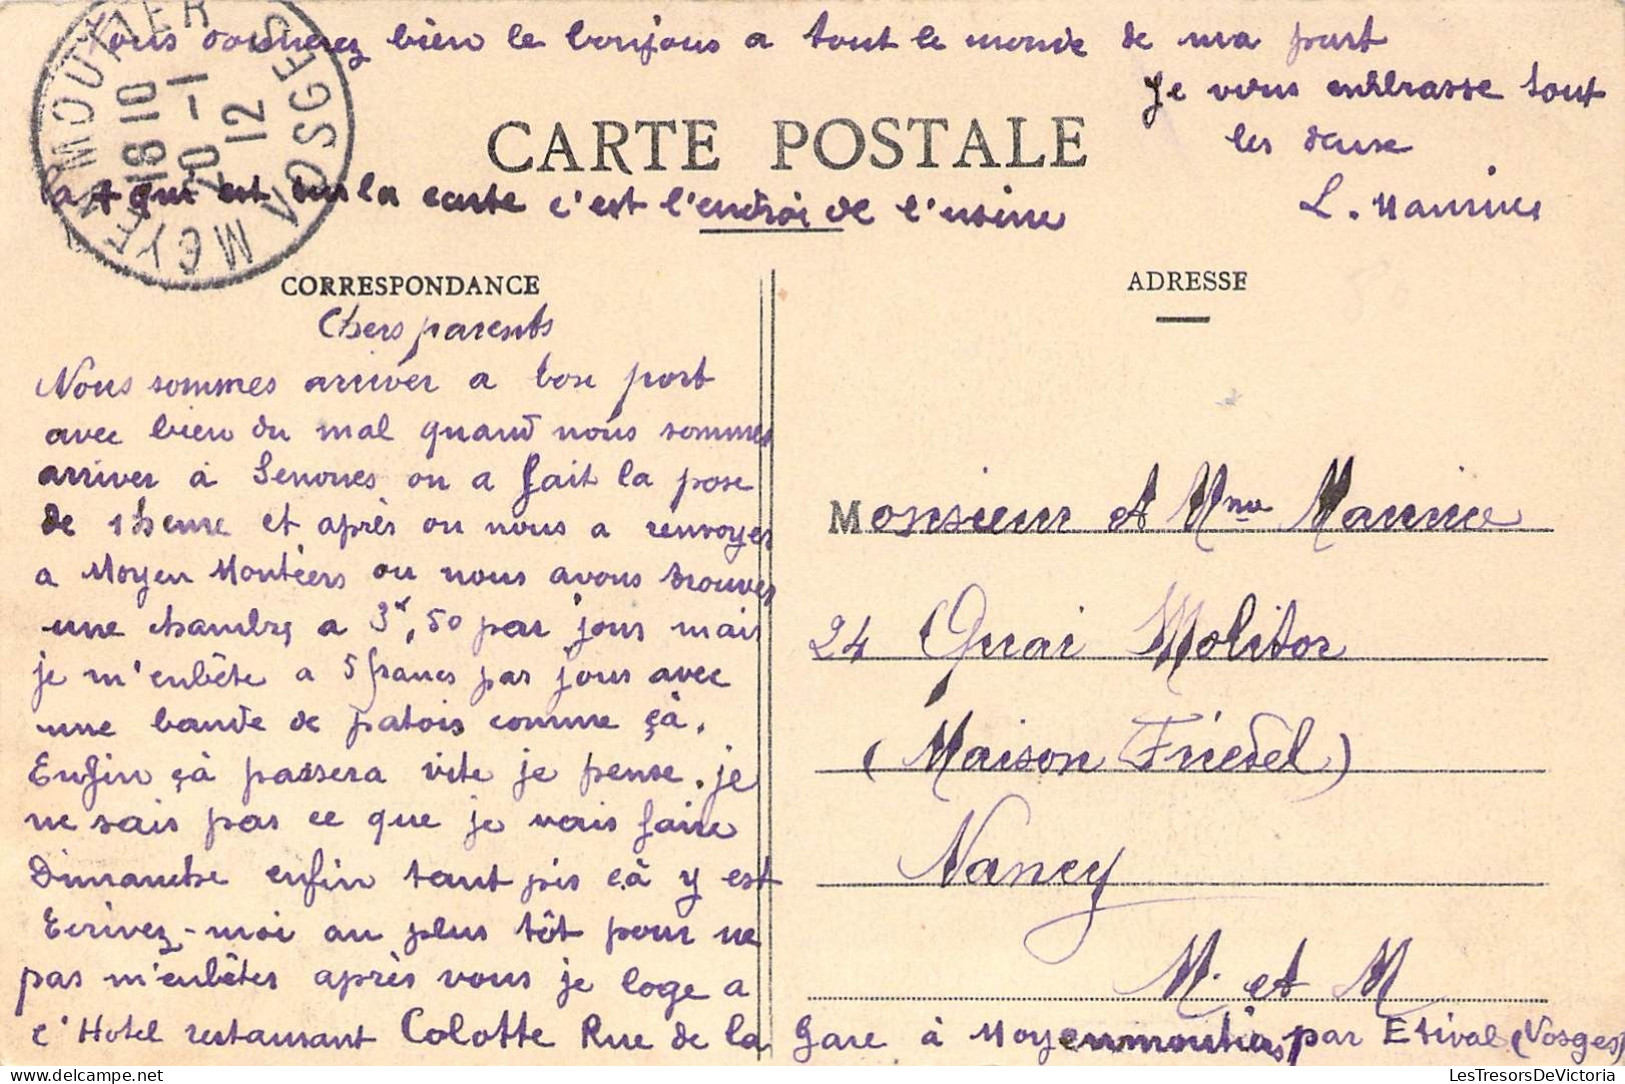 Vous donnerez bien le bonjous a tout le monde de ma part
Je vous embrasse tout
les deux
L. Maurice
MOYENMOUTIER VOSGES
18 10
20 -1
12
CARTE POSTALE
la + qui est sur la carte c'est l'endroi de l'usine
CORRESPONDANCE
Chers parents
Nous sommes arriver a bon port
avec bien du mal quand nous sommes
arriver à Senones on a fait la pose
de 1 heure et après on nous a renvoyer
a Moyen Moutiers ou nous avons trouver
une chambre a 3f,50 par jour mais
je m'enbête a 5 francs par jour avec
une bande de patois comme çà.
Enfin çà passera vite je pense. je
ne sais pas ce que je vais faire
Dimanche enfin tant pis çà y est
Ecrivez-moi au plus tôt pour ne
pas m'enbêter après vous je loge a
l'Hotel restaurant Colotte Rue de la Gare à Moyenmoutiers par Etival (Vosges)
ADRESSE
Monsieur et Mme Maurice
24 Quai Molitor
(Maison Friedel)
Nancy
M. et M
LesTresorsDeVictoria.com